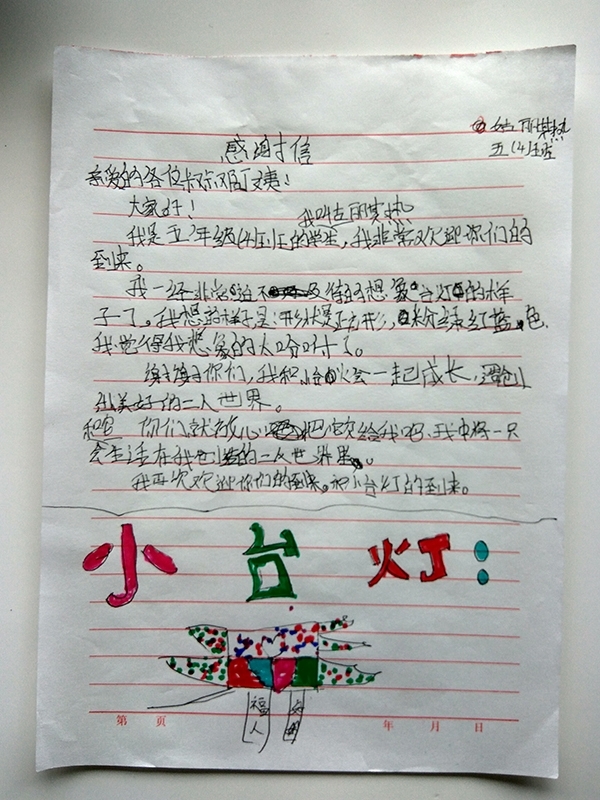 五(4)班
感谢信
亲爱的各位叔叔阿姨！
大家好！
我叫古丽其热
我是五年级(4)班的学生，我非常欢迎你们的
到来。
我已经非常迫不及待的想象台灯的样
子了。我想的样子是：形状是正方形，粉绿红蓝色。
我觉得我想象的太
谢谢你们，我和会一起成长，
美好的二人世界。
和它 你们就放心把它给我吧，我
会生活在我的二人世界里。
我再次欢迎你们的到来。和小台灯的到来。
小台灯：
福
人
第 页 年 月 日